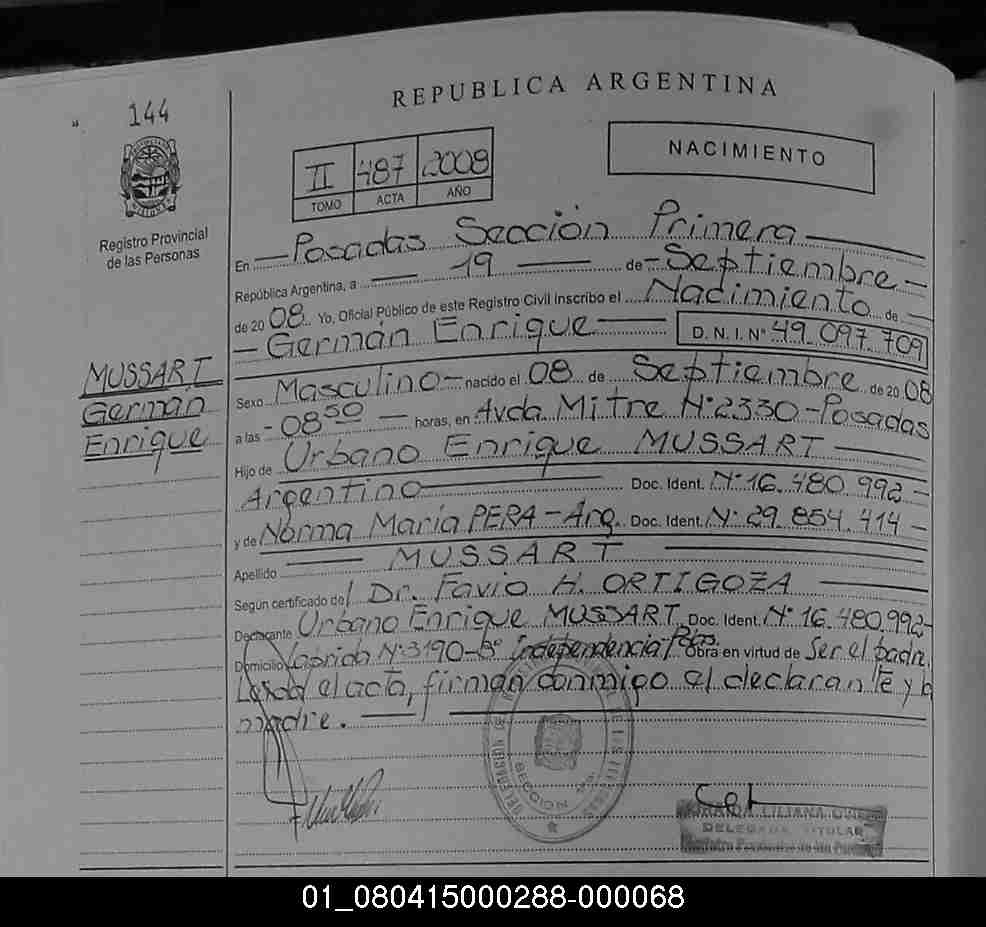 144
REPUBLICA ARGENTINA
II 487 2008
TOMO ACTA AÑO
NACIMIENTO
Registro Provincial
de las Personas
En Posadas Sección Primera
República Argentina, a 19 de Septiembre
de 2008 Yo, Oficial Público de este Registro Civil inscribo el Nacimiento de
Germán Enrique D. N. I. N° 49.097.709
MUSSART
Germán
Enrique
Sexo Masculino nacido el 08 de Septiembre de 2008
a las 08 50 horas, en Avda. Mitre N° 2330 - Posadas
Hijo de Urbano Enrique MUSSART
Argentino Doc. Ident. N° 16.480.992
y de Norma María PERA - Arg. Doc. Ident. N° 29.854.414
Apellido MUSSART
Según certificado del Dr. Favio H. ORTIGOZA
Declarante Urbano Enrique MUSSART Doc. Ident. N° 16.480.992
Domicilio Laprida N° 3190 - B° Independencia - Pdas. Obra en virtud de Ser el padre.
Leída el acta, firman conmigo el declarante y la
madre.
SECCION
LILIANA
DELEGADA TITULAR
Registro Provincial de las Personas
01_080415000288-000068